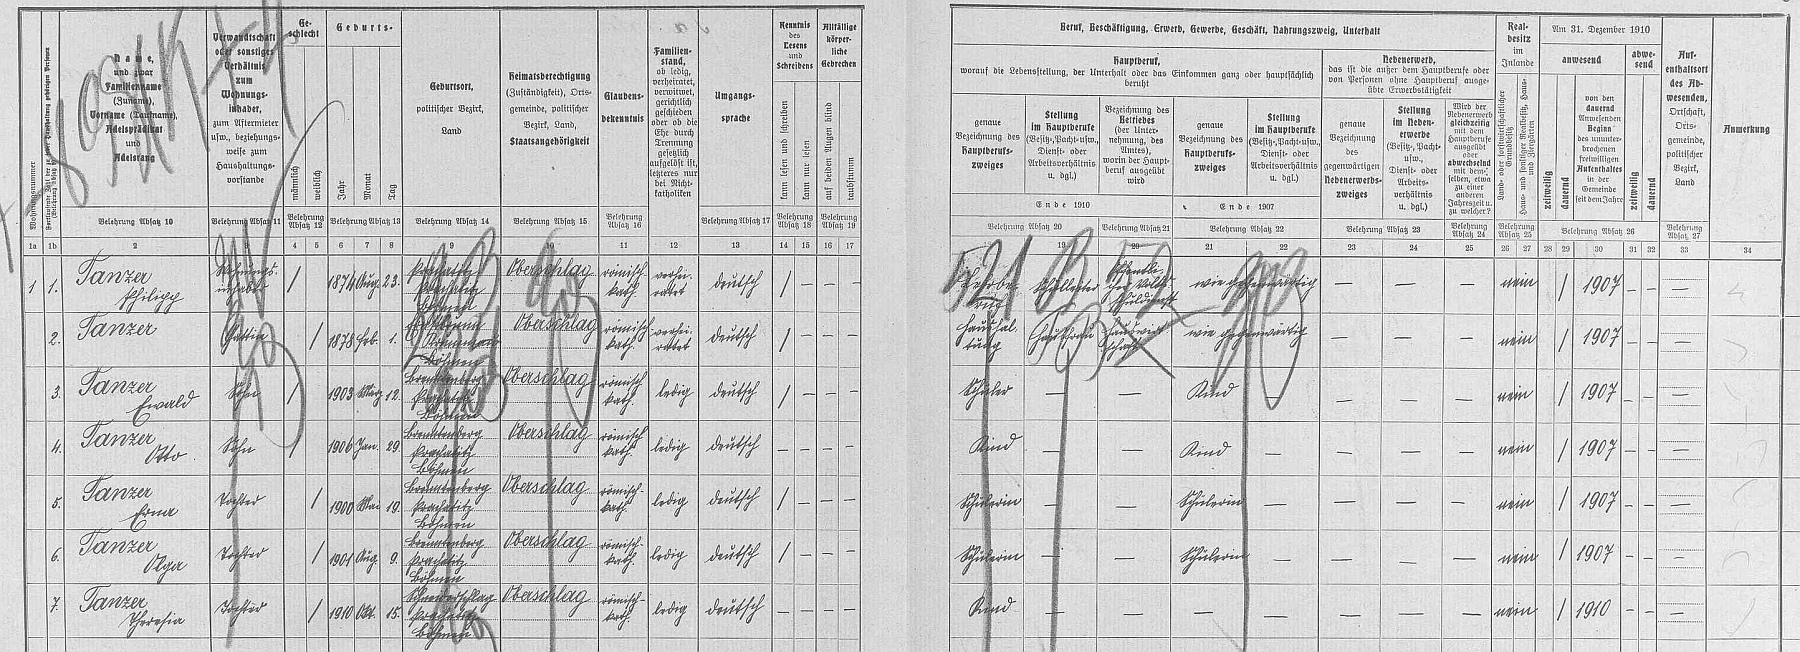 Name,
und zwar
Familienname
(Zuname),
Vorname (Taufname),
Adelsprädikat
und
Adelsrang
Verwandtschaft
oder sonstiges
Verhältnis
zum
Wohnungs-
inhaber,
zum Aftermieter
usw., beziehungs-
weise zum
Haushaltungs-
vorstande
Ge-
schlecht
männlich
weiblich
Geburts-
Jahr
Monat
Tag
Geburtsort,
politischer Bezirk,
Land
Heimatsberechtigung
(Zuständigkeit), Orts-
gemeinde, politischer
Bezirk, Land,
Staatsangehörigkeit
Glaubens-
bekenntnis
Familien-
stand,
ob ledig,
verheiratet,
verwitwet,
gerichtlich
geschieden
oder ob die
Ehe durch
Trennung
gesetzlich
aufgelöst ist,
letzteres nur
bei Nicht-
katholiken
Umgangs-
sprache
Kenntnis
des
Lesens
und
Schreibens
kann lesen und schreiben
kann nur lesen
Allfällige
körper-
liche
Gebrechen
auf beiden Augen blind
taubstumm
Wohnungsnummer
Belehrung Absatz 10
Belehrung Absatz 11
Belehrung
Absatz 12
Belehrung Absatz 13
Belehrung Absatz 14
Belehrung Absatz 15
Belehrung
Absatz 16
Belehrung Absatz 17
Belehrung
Absatz 18
Belehrung
Absatz 19
1a 1b 2 3 4 5 6 7 8 9 10 11 12 13 14 15 16 17
Beruf, Beschäftigung, Erwerb, Gewerbe, Geschäft, Nahrungszweig, Unterhalt
Hauptberuf,
worauf die Lebensstellung, der Unterhalt oder das Einkommen ganz oder hauptsächlich
beruht
genaue
Bezeichnung des
Hauptberufs-
zweiges
Stellung
im Hauptberufe
(Besitz-, Pacht- usw.,
Dienst- oder
Arbeitsverhältnis
u. dgl.)
Bezeichnung des
Betriebes
(der Unter-
nehmung, des
Amtes),
worin der Haupt-
beruf ausgeübt
wird
genaue
Bezeichnung des
Hauptberufs-
zweiges
Stellung
im Hauptberufe
(Besitz-, Pacht- usw.,
Dienst- oder
Arbeitsverhältnis
u. dgl.)
Ende 1910
Ende 1907
Nebenerwerb,
das ist die außer dem Hauptberufe oder
von Personen ohne Hauptberuf ausge-
übte Erwerbstätigkeit
genaue
Bezeichnung
des
gegenwärtigen
Nebenerwerbs-
zweiges
Stellung
im Neben-
erwerbe
(Besitz-, Pacht-
usw.,
Dienst- oder
Arbeits-
verhältnis
u. dgl.)
Wird der
Nebenerwerb
gleichzeitig
mit dem
Hauptberufe
ausgeübt
oder
abwechselnd
mit dem-
selben, etwa
zu einer
anderen
Jahreszeit u.
zu welcher?
Real-
besitz
im
Inlande
Am 31. Dezember 1910
anwesend
abwe-
send
zeitweilig
dauernd
von den
dauernd
Anwesenden
Beginn
des ununter-
brochenen
freiwilligen
Aufenthaltes
in der
Gemeinde
seit dem Jahre
zeitweilig
dauernd
Auf-
enthaltsort
des Ab-
wesenden,
Ortschaft,
Orts-
gemeinde,
politischer
Bezirk,
Land
Anmerkung
Belehrung Absatz 20
Belehrung Absatz 21
Belehrung Absatz 22
Belehrung Absatz 23
Belehrung
Absatz 24
Belehrung
Absatz 25
Belehrung Absatz 26
Belehrung
Absatz 27
19 20 21 22 23 24 25 26 27 28 29 30 31 32 33 34
1 1. Tanzer Philipp Wohnungs-inhaber / 1874 Aug. 23. Prachatitz Böhmen Oberschlag römisch kath. verhei-ratet deutsch / — — — wie gegenwärtig — — — nein / 1907 — — —
2. Tanzer Gattin / 1878 Feb. 1. Böhmen Oberschlag römisch kath. verhei-ratet deutsch / — — — Haushal-tung Hausfrau wie gegenwärtig — — — nein / 1907 — — —
3. Tanzer Ewald Sohn / 1903 März 12. Prachatitz Böhmen Oberschlag römisch kath. ledig deutsch / — — — Schüler — — Kind — — — nein / 1907 — — —
4. Tanzer Otto Sohn / 1906 Jan. 29. Prachatitz Böhmen Oberschlag römisch kath. ledig deutsch — — — Kind — — Kind — — — nein / 1907 — — —
5. Tanzer Erna Tochter / 1900 Mai 19. Prachatitz Böhmen Oberschlag römisch-kath. ledig deutsch / — — — Schülerin — — Schülerin — — — nein / 1907 — — —
6. Tanzer Olga Tochter / 1901 Aug. 9. Prachatitz Böhmen Oberschlag römisch-kath. ledig deutsch / — — — Schülerin — — Schülerin — — — — nein / 1907 — — —
7. Tanzer Theresia Tochter / 1910 Okt. 15. Prachatitz Böhmen Oberschlag römisch-kath. ledig deutsch — — — — Kind — — — — — — — nein / 1910 — — —